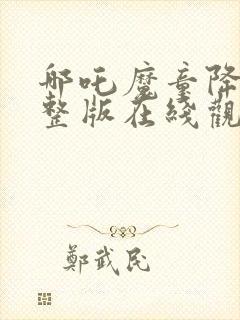 哪吒魔童降
整版在綫觀
鄭武民